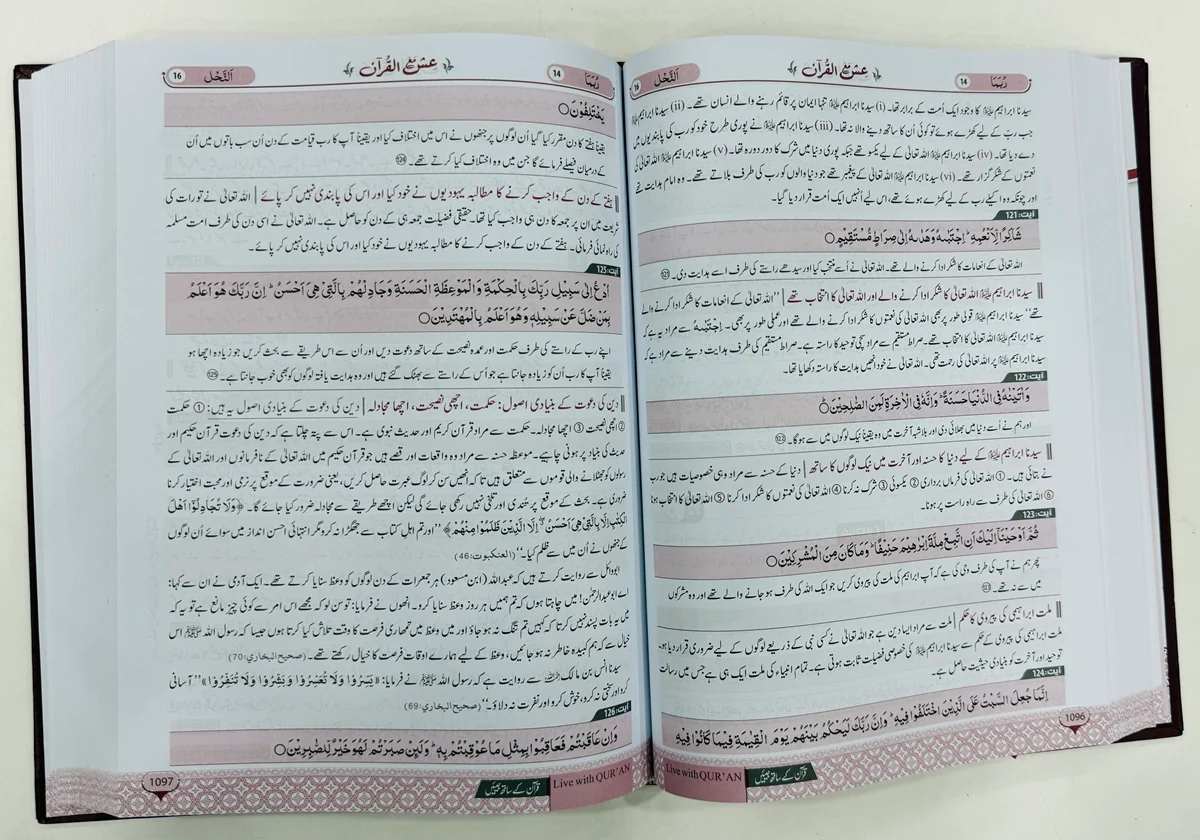 رُبَمَا 14
عشق القرآن
النَّحْل 16
سیدنا ابراہیم علیہ السلام کا وجود ایک اُمت کے برابر تھا۔ (i) سیدنا ابراہیم علیہ السلام تنہا ایمان پر قائم رہنے والے انسان تھے۔ (ii) سیدنا ابراہیم علیہ السلام
جب رب کے لیے کھڑے ہوئے تو کوئی اُن کا ساتھ دینے والا نہ تھا۔ (iii) سیدنا ابراہیم علیہ السلام نے پوری طرح خود کو رب کی پابندیوں میں
دے دیا تھا۔ (iv) سیدنا ابراہیم علیہ السلام اللہ تعالیٰ کے لیے یکسو تھے جبکہ پوری دنیا میں شرک کا دور دورہ تھا۔ (v) سیدنا ابراہیم علیہ السلام اللہ تعالیٰ کی
نعمتوں کے شکر گزار تھے۔ (vi) سیدنا ابراہیم علیہ السلام اللہ تعالیٰ کے پیغمبر تھے جو دنیا والوں کو رب کی طرف بلاتے تھے۔ وہ امام ہدایت تھے
اور چونکہ وہ اکیلے رب کے لیے کھڑے ہوئے تھے، اس لیے اُنہیں ایک اُمت قرار دیا گیا۔
آیت:121
شَاكِرًا لِّاَنْعُمِهٖ ؕ اِجْتَبٰىهُ وَهَدٰىهُ اِلٰى صِرَاطٍ مُّسْتَقِيْمٍ ○
اللہ تعالیٰ کے انعامات کا شکر ادا کرنے والے تھے۔ اللہ تعالیٰ نے اُسے منتخب کیا اور سیدھے راستے کی طرف اسے ہدایت دی۔ (121)
سیدنا ابراہیم علیہ السلام اللہ تعالیٰ کا شکر ادا کرنے والے اور اللہ تعالیٰ کا انتخاب تھے | ”اللہ تعالیٰ کے انعامات کا شکر ادا کرنے والے
تھے“ سیدنا ابراہیم علیہ السلام قولی طور پر بھی اللہ تعالیٰ کی نعمتوں کا شکر ادا کرنے والے تھے اور عملی طور پر بھی۔ اِجْتَبٰىهُ سے مراد یہ ہے کہ
سیدنا ابراہیم علیہ السلام اللہ تعالیٰ کا انتخاب تھے۔ صراط مستقیم سے مراد سچی توحید کا راستہ ہے۔ صراط مستقیم کی طرف ہدایت دینے سے مراد ہے کہ
سیدنا ابراہیم علیہ السلام پر اللہ تعالیٰ کی رحمت تھی۔ اللہ تعالیٰ نے خود انھیں ہدایت کا راستہ دکھایا تھا۔
آیت:122
وَاٰتَيْنٰهُ فِى الدُّنْيَا حَسَنَةً ؕ وَاِنَّهٗ فِى الْاٰخِرَةِ لَمِنَ الصّٰلِحِيْنَ ○
اور ہم نے اُسے دنیا میں بھلائی دی اور بلاشبہ آخرت میں وہ یقیناً نیک لوگوں میں سے ہوگا۔ (122)
سیدنا ابراہیم علیہ السلام کے لیے دنیا کا حسنہ اور آخرت میں نیک لوگوں کا ساتھ | دنیا کے حسنہ سے مراد وہی خصوصیات ہیں جو رب
نے بتائی ہیں۔ ① اللہ تعالیٰ کی فرماں برداری ② یکسوئی ③ شرک نہ کرنا ④ اللہ تعالیٰ کی نعمتوں کا شکر ادا کرنا ⑤ اللہ تعالیٰ کا انتخاب ہونا
⑥ اللہ تعالیٰ کی طرف سے راہ راست پر ہونا۔
آیت:123
ثُمَّ اَوْحَيْنَاۤ اِلَيْكَ اَنِ اتَّبِعْ مِلَّةَ اِبْرٰهِيْمَ حَنِيْفًا ؕ وَمَا كَانَ مِنَ الْمُشْرِكِيْنَ ○
پھر ہم نے آپ کی طرف وحی کی ہے کہ آپ ابراہیم کی ملت کی پیروی کریں جو ایک اللہ کی طرف ہو جانے والے تھے اور وہ مشرکوں
میں سے نہ تھے۔ (123)
ملت ابراہیمی کی پیروی کا حکم | ملت سے مراد ایسا دین ہے جو اللہ تعالیٰ نے کسی نبی کے ذریعے لوگوں کے لیے ضروری قرار دیا ہو۔
ملت ابراہیمی کی پیروی کے حکم سے سیدنا ابراہیم علیہ السلام کی خصوصی فضیلت ثابت ہوتی ہے۔ تمام انبیاء کی ملت ایک ہی ہے جس میں رسالت
توحید اور آخرت کو بنیادی حیثیت حاصل ہے۔
آیت:124
اِنَّمَا جُعِلَ السَّبْتُ عَلَى الَّذِيْنَ اخْتَلَفُوْا فِيْهِ ؕ وَاِنَّ رَبَّكَ لَيَحْكُمُ بَيْنَهُمْ يَوْمَ الْقِيٰمَةِ فِيْمَا كَانُوْا فِيْهِ
1096
قرآن کے ساتھ جئیں
Live with QUR'AN
رُبَمَا 14
عشق القرآن
النَّحْل 16
يَخْتَلِفُوْنَ ○
یقیناً ہفتے کا دن مقرر کیا گیا اُن لوگوں پر جنھوں نے اس میں اختلاف کیا اور یقیناً آپ کا رب قیامت کے دن اُن سب باتوں میں اُن
کے درمیان فیصلہ فرمائے گا جن میں وہ اختلاف کیا کرتے تھے۔ (124)
ہفتے کے دن کے واجب کرنے کا مطالبہ یہودیوں نے خود کیا اور اس کی پابندی نہیں کر پائے | اللہ تعالیٰ نے تورات کی
شریعت میں ان پر جمعہ کا دن ہی واجب کیا تھا۔ حقیقی فضیلت جمعہ ہی کے دن کو حاصل ہے۔ اللہ تعالیٰ نے اسی دن کی طرف امت مسلمہ
کی راہ نمائی فرمائی۔ ہفتے کے دن کے واجب کرنے کا مطالبہ یہودیوں نے خود کیا اور اس کی پابندی نہیں کر پائے۔
آیت:125
اُدْعُ اِلٰى سَبِيْلِ رَبِّكَ بِالْحِكْمَةِ وَالْمَوْعِظَةِ الْحَسَنَةِ وَجَادِلْهُمْ بِالَّتِىْ هِىَ اَحْسَنُ ؕ اِنَّ رَبَّكَ هُوَ اَعْلَمُ
بِمَنْ ضَلَّ عَنْ سَبِيْلِهٖ وَهُوَ اَعْلَمُ بِالْمُهْتَدِيْنَ ○
اپنے رب کے راستے کی طرف حکمت اور عمدہ نصیحت کے ساتھ دعوت دیں اور اُن سے اس طریقے سے بحث کریں جو زیادہ اچھا ہو
یقیناً آپ کا رب اُن کو زیادہ جانتا ہے جو اُس کے راستے سے بھٹک گئے ہیں اور وہ ہدایت یافتہ لوگوں کو بھی خوب جانتا ہے۔ (125)
دین کی دعوت کے بنیادی اصول: حکمت، اچھی نصیحت، اچھا مجادلہ | دین کی دعوت کے بنیادی اصول یہ ہیں: ① حکمت
② اچھی نصیحت ③ اچھا مجادلہ۔ حکمت سے مراد قرآن کریم اور حدیث نبوی ہے۔ اس سے پتہ چلتا ہے کہ دین کی دعوت قرآن حکیم اور
حدیث کی بنیاد پر ہونی چاہیے۔ موعظہ حسنہ سے مراد وہ واقعات اور قصے ہیں جو قرآن حکیم میں اللہ تعالیٰ کے نافرمانوں اور اللہ تعالیٰ کے
رسولوں کو جھٹلانے والی قوموں سے متعلق ہیں تا کہ انھیں سن کر لوگ عبرت حاصل کریں، یعنی ضرورت کے موقع پر نرمی اور محبت اختیار کرنا
ضروری ہے۔ بحث کے موقع پر تندی اور تلخی نہیں رکھی جائے گی لیکن اچھے طریقے سے مجادلہ ضرور کیا جائے گا۔ ﴿وَلَا تُجَادِلُوْۤا اَهْلَ
الْكِتٰبِ اِلَّا بِالَّتِىْ هِىَ اَحْسَنُ ۖ اِلَّا الَّذِيْنَ ظَلَمُوْا مِنْهُمْ﴾ ”اور تم اہل کتاب سے جھگڑا نہ کرو مگر انتہائی احسن انداز میں سوائے اُن لوگوں
کے جنھوں نے اُن میں سے ظلم کیا۔“ (العنکبوت:46)
ابووائل سے روایت کرتے ہیں کہ عبداللہ (ابن مسعود) ہر جمعرات کے دن لوگوں کو وعظ سنایا کرتے تھے۔ ایک آدمی نے ان سے کہا:
اے ابوعبدالرحمٰن! میں چاہتا ہوں کہ تم ہمیں ہر روز وعظ سنایا کرو۔ انھوں نے فرمایا: تو سن لو کہ مجھے اس امر سے کوئی چیز مانع ہے تو یہ کہ
میں یہ بات پسند نہیں کرتا کہ کہیں تم تنگ نہ ہو جاؤ اور میں وعظ میں تمھاری فرصت کا وقت تلاش کیا کرتا ہوں جیسا کہ رسول اللہ ﷺ اس
خیال سے کہ ہم کبیدہ خاطر نہ ہو جائیں، وعظ کے لیے ہمارے اوقات فرصت کا خیال رکھتے تھے۔ (صحیح البخاری:70)
سیدنا انس بن مالک رضی اللہ عنہ سے روایت ہے کہ رسول اللہ ﷺ نے فرمایا: «يَسِّرُوْا وَلَا تُعَسِّرُوْا وَبَشِّرُوْا وَلَا تُنَفِّرُوْا» ”آسانی
کرو اور سختی نہ کرو، خوش کرو اور نفرت نہ دلاؤ۔“ (صحیح البخاری:69)
آیت:126
وَاِنْ عَاقَبْتُمْ فَعَاقِبُوْا بِمِثْلِ مَا عُوْقِبْتُمْ بِهٖ ؕ وَلَئِنْ صَبَرْتُمْ لَهُوَ خَيْرٌ لِّلصّٰبِرِيْنَ ○
Live with QUR'AN
قرآن کے ساتھ جئیں
1097